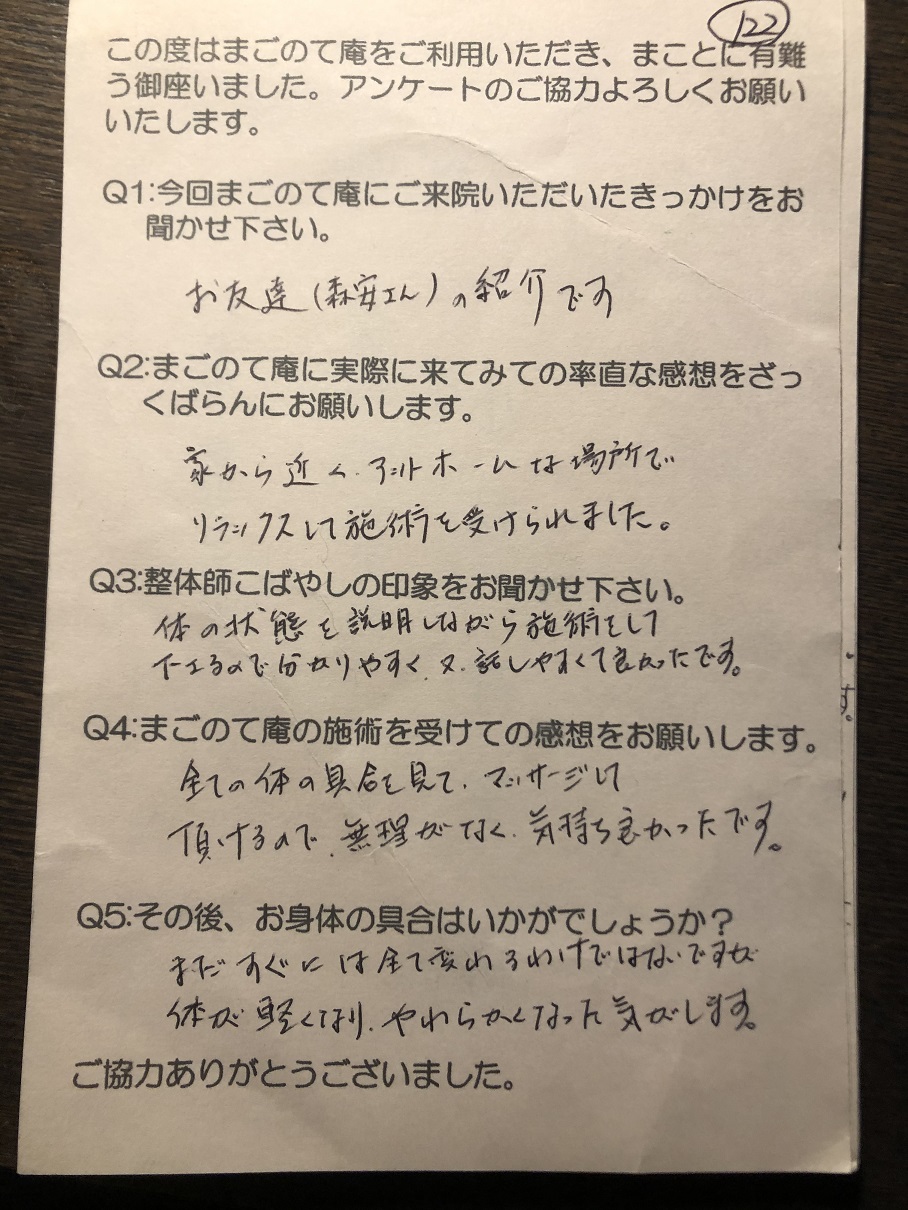 122
この度はまごのて庵をご利用いただき、まことに有難
う御座いました。アンケートのご協力よろしくお願い
いたします。
Q1:今回まごのて庵にご来院いただいたきっかけをお
聞かせ下さい。
お友達(森安さん)の紹介です
Q2:まごのて庵に実際に来てみての率直な感想をざっ
くばらんにお願いします。
家から近く、アットホームな場所で
リラックスして施術を受けられました。
Q3:整体師こばやしの印象をお聞かせ下さい。
体の状態を説明しながら施術をして
下さるので分かりやすく、又、話しやすくて良かったです。
Q4:まごのて庵の施術を受けての感想をお願いします。
全ての体の具合を見て、マッサージして
頂けるので、無理がなく、気持ち良かったです。
Q5:その後、お身体の具合はいかがでしょうか?
まだすぐには全て変われるわけではないですが
体が軽くなり、やわらかくなった気がします。
ご協力ありがとうございました。
す。